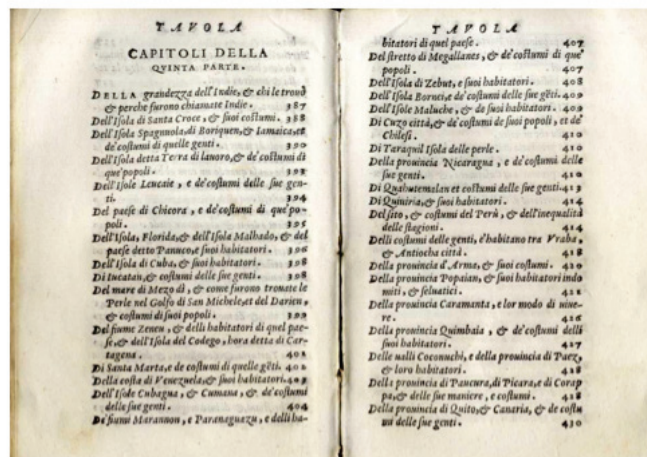 TAVOLA
CAPITOLI DELLA
QVINTA PARTE.
DELLA grandezza dell'Indie, & chi le trouò
& perche furono chiamate Indie. 387
Dell'Isola di Santa Croce, & suoi costumi. 388
Dell'Isola Spagnuola, di Boriquen, & Iamaica, et
de'costumi di quelle genti. 390
Dell'Isola detta Terra di lauoro, & de'costumi di
que'popoli. 393
Dell'Isole Leucaie, e de'costumi delle sue gen-
ti. 394
Del paese di Chicora, e de'costumi di que'po-
poli. 395
Dell'Isola, Florida, & dell'Isola Malhado, & del
paese detto Panuco, e suoi habitatori. 396
Dell'Isola di Cuba, & suoi habitatori. 398
Di Iucatan, & costumi delle sue genti. 398
Del mare di Mezo dì, & come furono trouate le
Perle nel Golfo di San Michele, et del Darien,
& costumi di suoi popoli. 399
Del fiume Zeneu, & delli habitatori di quel pae-
se, & dell'Isola del Codego, hora detta di Car-
tagena. 401
Di Santa Marta, e de costumi di quelle gēti. 402
Della costa di Venezuela, & suoi habitatori. 403
Dell'Isole Cubagua, & Cumana, & de'costumi
delle sue genti. 404
Di fiumi Marannon, e Paranaguazu, e delli ha-
TAVOLA
bitatori di quel paese. 407
Del stretto di Megallanes, & de'costumi di que'
popoli. 407
Dell'Isola di Zebut, e suoi habitatori. 408
Dell'Isola Bornei, e de'costumi delle sue gēti. 409
Dell'Isole Maluche, & de suoi habitatori. 409
Di Cuzo città, & de'costumi de suoi popoli, et de'
Chilesi. 410
Di Taraquil Isola delle perle. 410
Della prouincia Nicaragna, e de'costumi delle
sue genti. 410
Di Quahutemalan et costumi delle sue genti. 413
Di Quiniria, & suoi habitatori. 414
Del sito, & costumi del Perù, & dell'inequalità
delle stagioni. 414
Delli costumi delle genti, c'habitano tra Vraba,
& Antiocha città. 418
Della prouincia d'Arma, & suoi costumi. 420
Della prouincia Popaian, & suoi habitatori indo
miti, & seluatici. 421
Della prouincia Caramanta, e lor modo di uiue-
re. 426
Della prouincia Quimbaia, & de'costumi delli
suoi habitatori. 427
Delle ualli Coconuchi, e della prouincia di Paez,
& loro habitatori. 428
Della prouincia di Paucura, di Picara, e di Corap
pa, & delle sue maniere, e costumi. 428
Della prouincia di Quito, & Canaria, & de costu
mi delle sue genti. 430